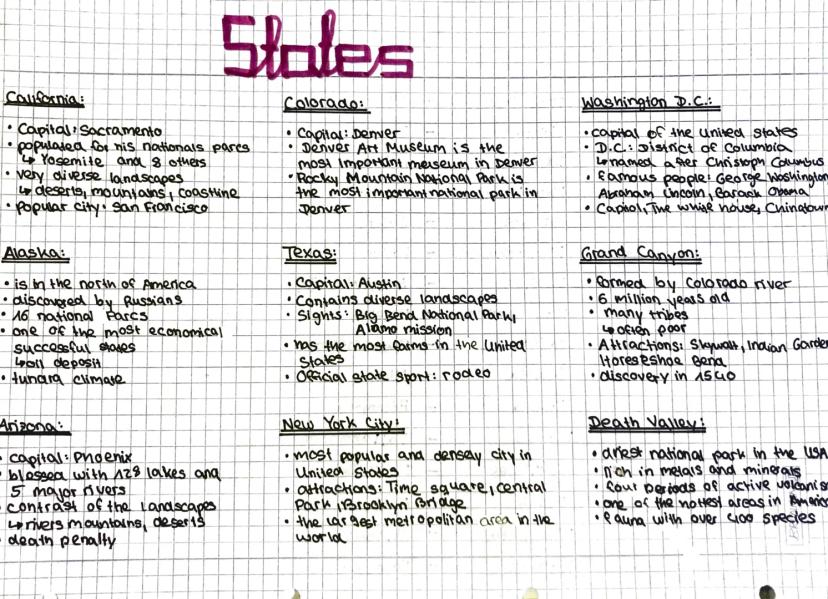 States
California:
• Capital: Sacramento
• populated for his nationals parcs
↳ Yosemite and 8 others
• very diverse landscapes
↳ deserts, mountains, coastline
• popular city: San Francisco
Colorado:
• Capital: Denver
• Denver Art Museum is the
most important meuseum in Denver
• Rocky Mountain National Park is
the most important national park in
Denver
Washington D.C.:
• capital of the United States
• D.C.: District of Columbia
↳ named after Christoph Columbus
• famous people: George Washington
Abraham Lincoln, Barack Obama
• Capitol, The white house, Chinatown
Alaska:
• is in the north of America
• discovered by Russians
• 16 national Parcs
• one of the most economical
successful states
↳ oil deposit
• tundra climate
Texas:
• Capital: Austin
• Contains diverse landscapes
• Sights: Big Bend National Park,
Alamo mission
• has the most farms in the United
States
• Official state sport: rodeo
Grand Canyon:
• formed by Colorado river
• 6 million years old
• many tribes
↳ often poor
• Attractions: Skywalk, Indian Garden
Horeseshoe Bend
• discovery in 1540
Arizona:
• capital: Phoenix
• blessed with 128 lakes and
5 major rivers
• contrast of the landscapes
↳ rivers mountains, deserts
• death penalty
New York City:
• most popular and densely city in
United States
• attractions: Time square, central
Park, Brooklyn Bridge
• the largest metropolitan area in the
world
Death Valley:
• driest national park in the USA
• rich in metals and minerals
• four periods of active volcanis
• one of the hottest areas in America
• fauna with over 400 species